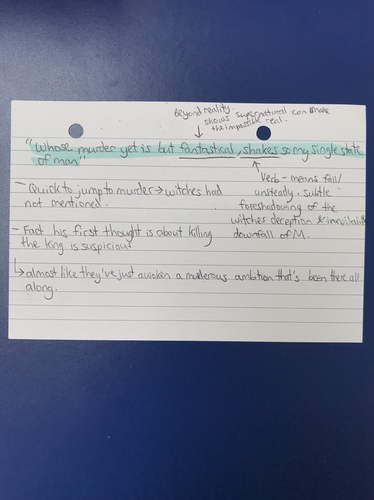 Beyond reality.
shows supernatural can make
the impossible real.
"Whose murder yet is but fantastical, shakes so my single state
of man"
- Quick to jump to murder → witches had
not mentioned.
Verb - means fail/
unsteady, subtle
foreshadowing of the
witches deception &
downfall of M.
- Fact his first thought is about killing
the king is suspicious
↳ almost like they've just awoken a murderous ambition that's been there all
along.